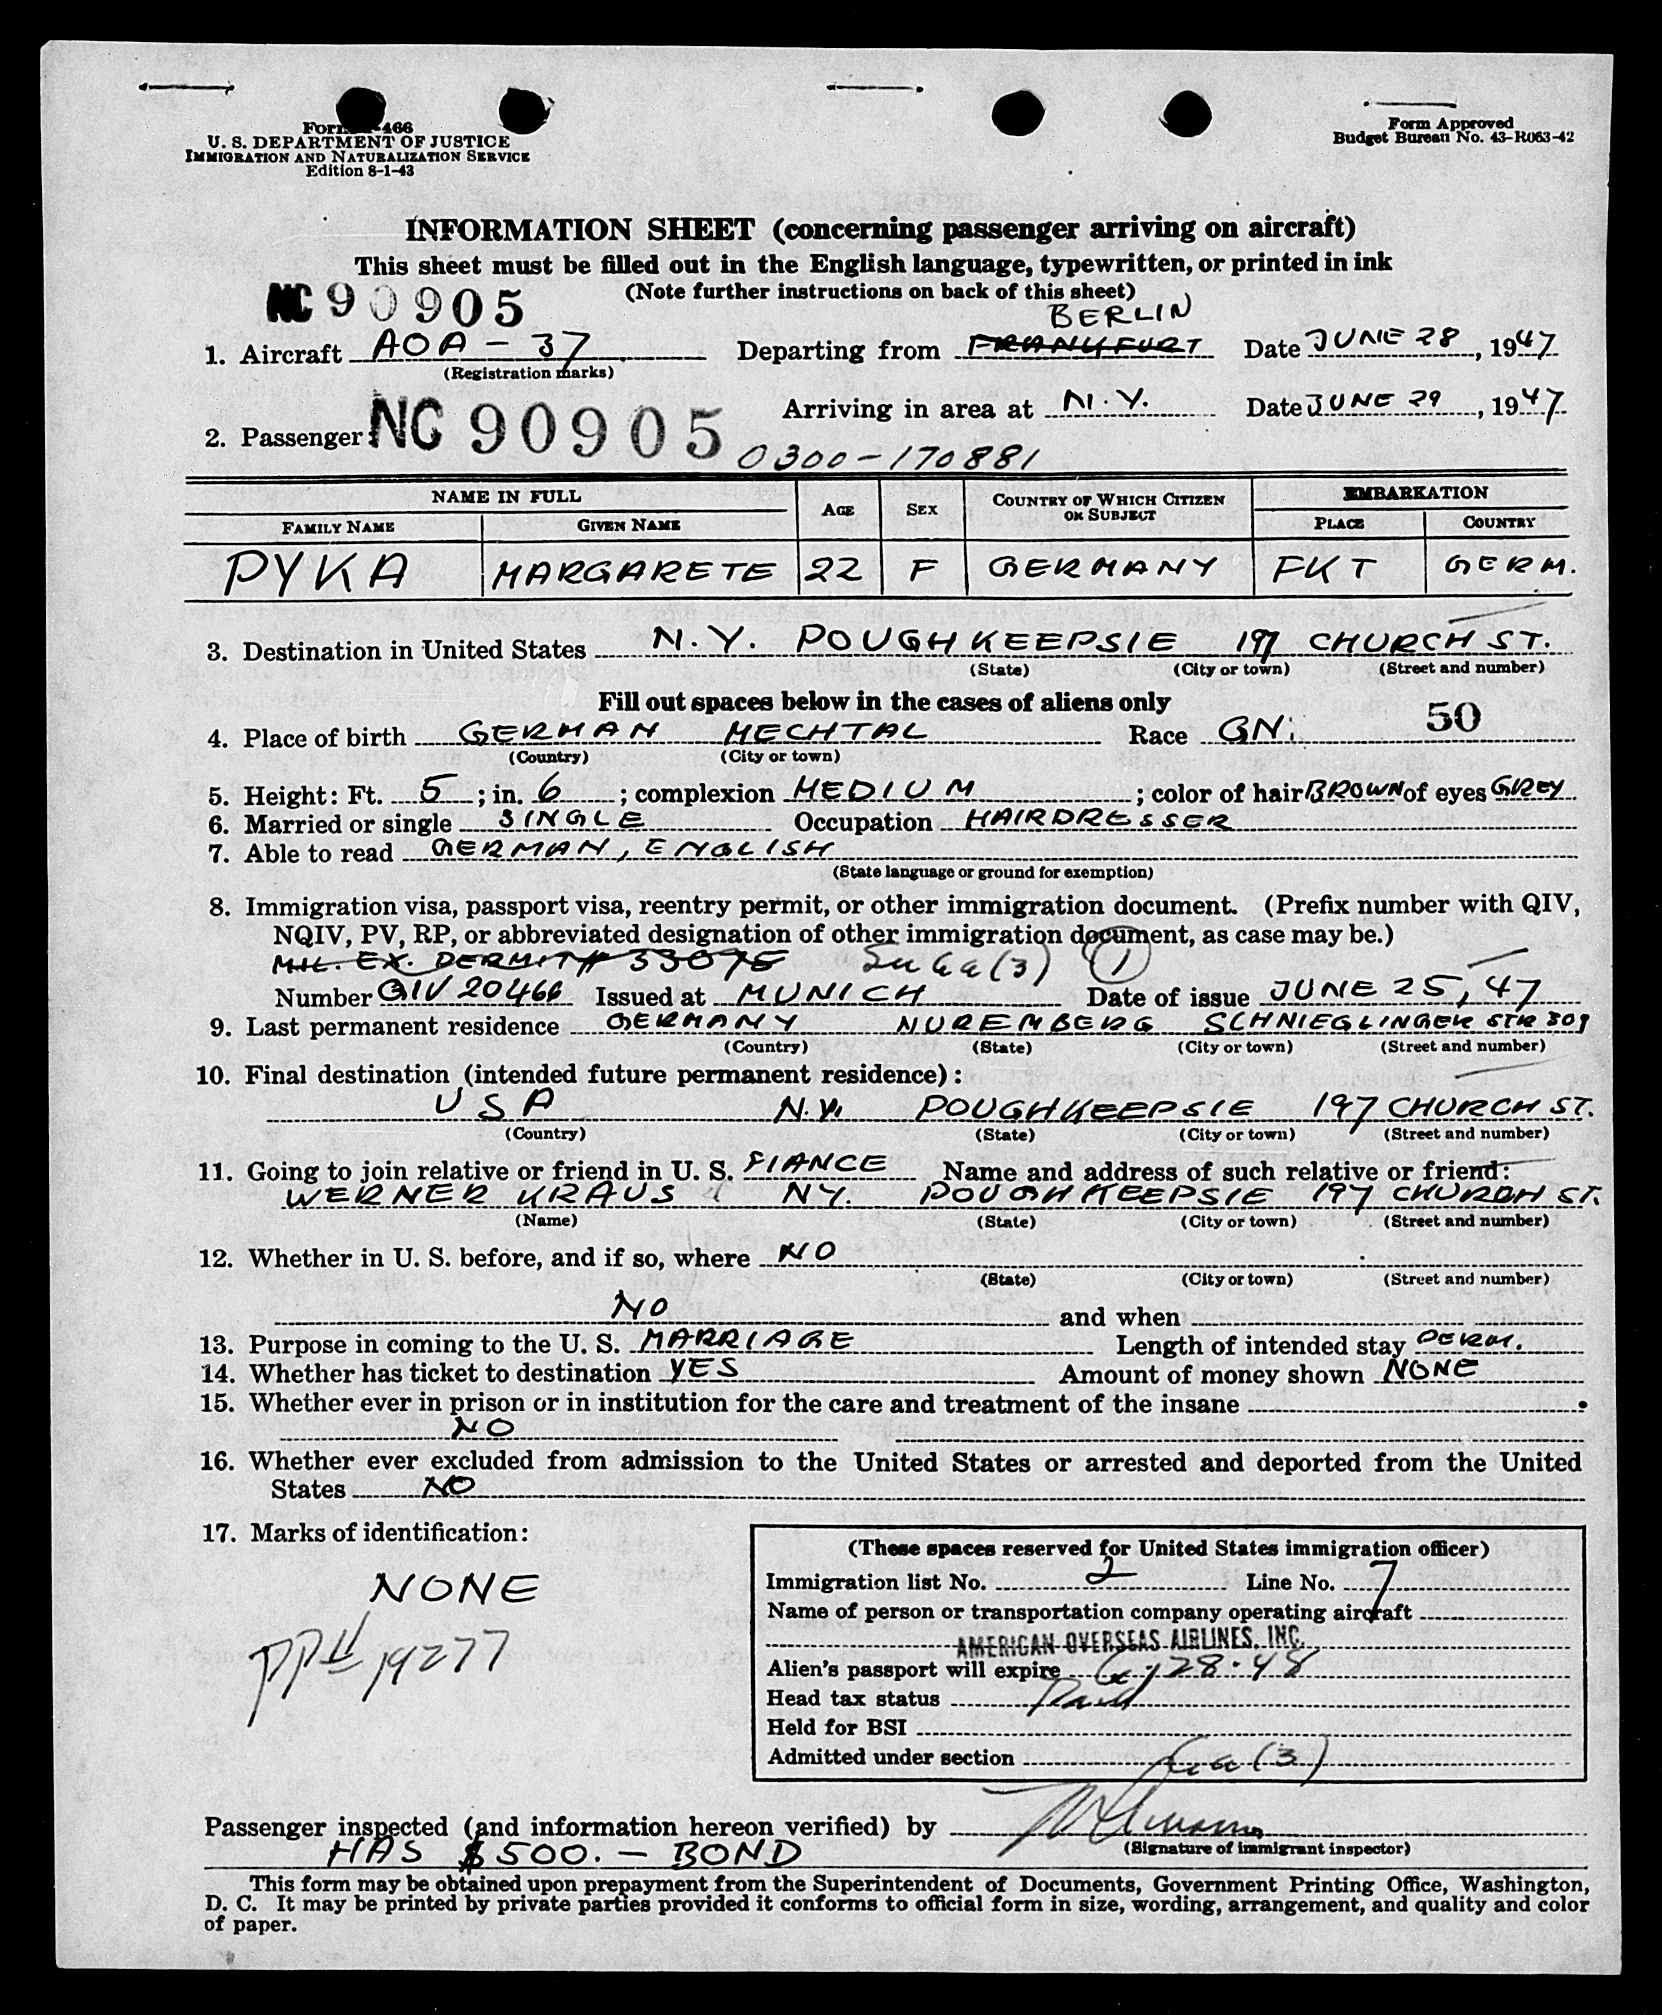 Form 466
U. S. DEPARTMENT OF JUSTICE
IMMIGRATION AND NATURALIZATION SERVICE
Edition 8-1-43
Form Approved
Budget Bureau No. 43-R063-42
INFORMATION SHEET (concerning passenger arriving on aircraft)
This sheet must be filled out in the English language, typewritten, or printed in ink
(Note further instructions on back of this sheet)
NC 90905
BERLIN
1. Aircraft AOA - 37 Departing from FRANKFURT Date JUNE 28, 1947
(Registration marks)
Arriving in area at N.Y. Date JUNE 29, 1947
2. Passenger NC 90905
0300-170881
NAME IN FULL AGE SEX COUNTRY OF WHICH CITIZEN OR SUBJECT EMBARKATION
FAMILY NAME GIVEN NAME PLACE COUNTRY
PYKA MARGARETE 22 F GERMANY FKT GERM.
3. Destination in United States N.Y. POUGHKEEPSIE 197 CHURCH ST.
(State) (City or town) (Street and number)
Fill out spaces below in the cases of aliens only
4. Place of birth GERMAN MECHTAL Race GN. 50
(Country) (City or town)
5. Height: Ft. 5; in. 6; complexion MEDIUM; color of hair BROWN of eyes GREY
6. Married or single SINGLE Occupation HAIRDRESSER
7. Able to read GERMAN, ENGLISH
(State language or ground for exemption)
8. Immigration visa, passport visa, reentry permit, or other immigration document. (Prefix number with QIV,
NQIV, PV, RP, or abbreviated designation of other immigration document, as case may be.)
MIL. EX. PERMIT# 33075 6a(3) 1
Number QIV 20466 Issued at MUNICH Date of issue JUNE 25, 47
9. Last permanent residence GERMANY NUREMBERG SCHNIEGLINGER STR 309
(Country) (State) (City or town) (Street and number)
10. Final destination (intended future permanent residence):
USA N.Y. POUGHKEEPSIE 197 CHURCH ST.
(Country) (State) (City or town) (Street and number)
11. Going to join relative or friend in U. S. FIANCE Name and address of such relative or friend:
WERNER KRAUS NY. POUGHKEEPSIE 197 CHURCH ST.
(Name) (State) (City or town) (Street and number)
12. Whether in U. S. before, and if so, where NO
(State) (City or town) (Street and number)
NO and when
13. Purpose in coming to the U. S. MARRIAGE Length of intended stay PERM.
14. Whether has ticket to destination YES Amount of money shown NONE
15. Whether ever in prison or in institution for the care and treatment of the insane
NO
16. Whether ever excluded from admission to the United States or arrested and deported from the United
States NO
17. Marks of identification:
NONE
PP# 19277
(These spaces reserved for United States immigration officer)
Immigration list No. 2 Line No. 7
Name of person or transportation company operating aircraft
AMERICAN OVERSEAS AIRLINES, INC.
Alien's passport will expire 6/28-48
Head tax status Paid
Held for BSI
Admitted under section 6a(3)
Passenger inspected (and information hereon verified) by
(Signature of immigrant inspector)
HAS $500. - BOND
This form may be obtained upon prepayment from the Superintendent of Documents, Government Printing Office, Washington,
D. C. It may be printed by private parties provided it conforms to official form in size, wording, arrangement, and quality and color
of paper.